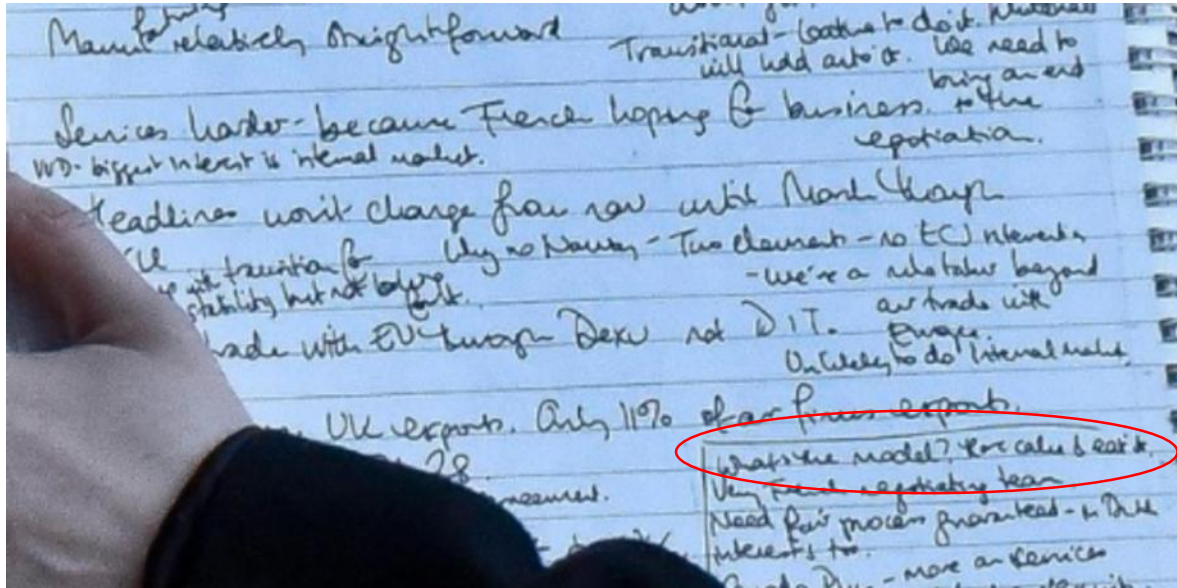 Manufacturing relatively straightforward
Transitional - loathe to do it. Whitehall
will hold onto it. We need to
bring an end
to the
negotiation.
Services harder - because French hoping for business.
WD - biggest interest is internal market.
Headlines won't change from now until March though
up with transition for
stability but not before
Why no Norway - Two elements - no ECJ intervention
- we're a rule taker beyond
our trade with
Europe.
Unlikely to do internal market.
trade with EU through Dexeu not DIT.
UK exports. Only 11% of our firms exports.
28
agreement.
What's the model? Have cake & eat it.
Very French negotiating team
Need fair process guaranteed - in Dutch
interests too.
Canada Plus - more on services